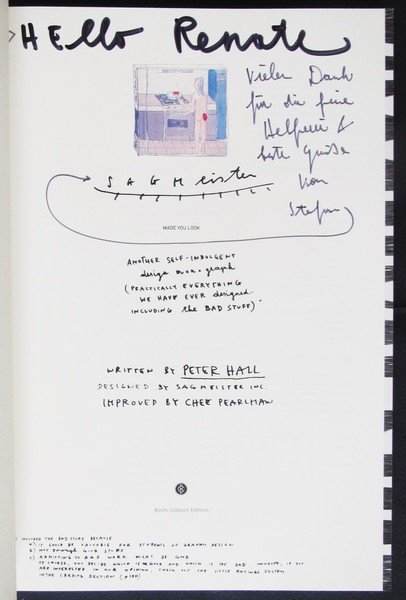 HELLO Renate
Vielen Dank
für die feine
Helferei &
beste Grüße
von
Stefan
SAGMeister
MADE YOU LOOK
ANOTHER SELF-INDULGENT
design mon•graph
(PRACTICALLY EVERYTHING
WE HAVE EVER designed
INCLUDING the BAD STUFF)*
WRITTEN BY PETER HALL
DESIGNED BY SAGMEISTER INC.
IMPROVED BY CHEE PEARLMAN
Booth-Clibborn Editions
INCLUDED THE BAD STUFF BECAUSE
A) IT COULD BE VALUABLE FOR STUDENTS OF GRAPHIC DESIGN
B) NOT ENOUGH GOOD STUFF
C) ADMITTING TO BAD WORK MIGHT BE GOOD
OF COURSE, YOU DECIDE WHICH IS GOOD AND WHICH IS THE BAD. HOWEVER, IF YOU
ARE INTERESTED IN OUR OPINION, CHECK OUT THE LITTLE RATINGS SYSTEM
IN THE CREDITS SECTION